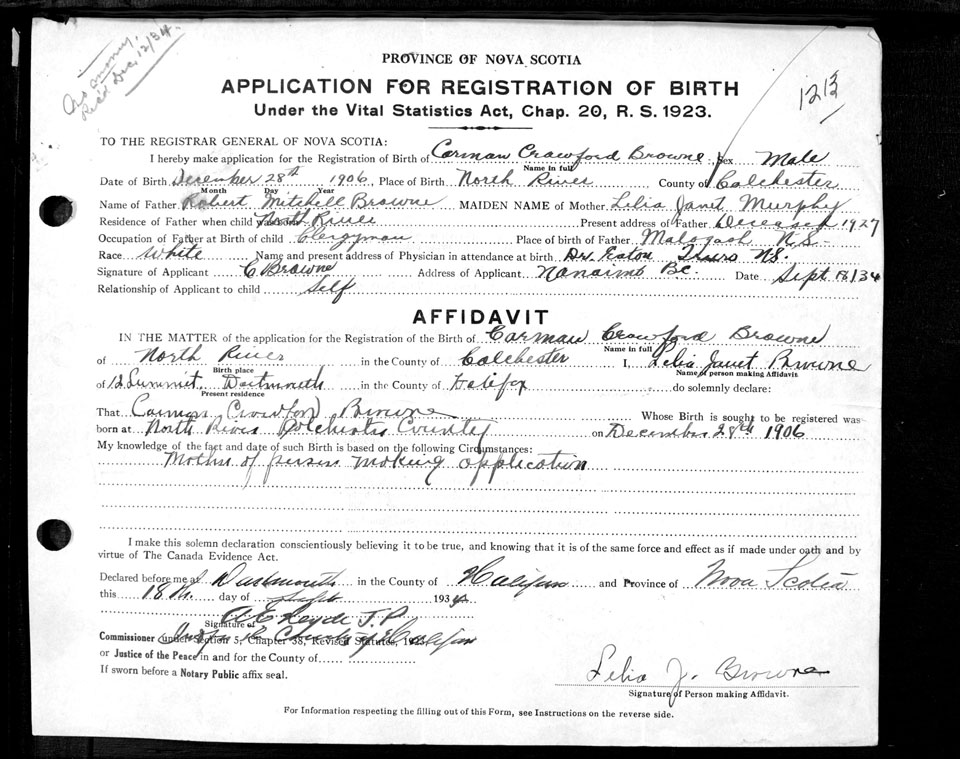 No money.
Rec'd Dec. 12/34.
1213
PROVINCE OF NOVA SCOTIA
APPLICATION FOR REGISTRATION OF BIRTH
Under the Vital Statistics Act, Chap. 20, R. S. 1923.
TO THE REGISTRAR GENERAL OF NOVA SCOTIA:
I hereby make application for the Registration of Birth of Carman Crawford Browne Sex Male
Name in full
Date of Birth December 28th 1906, Place of Birth North River County of Colchester
Month Day Year
Name of Father Robert Mitchell Browne MAIDEN NAME of Mother Lelia Janet Murphy
Residence of Father when child was born North River Present address of Father Deceased 1927
Occupation of Father at Birth of child Clergyman Place of birth of Father Malagash N.S.
Race White Name and present address of Physician in attendance at birth Dr. Eaton Truro N.S.
Signature of Applicant C Browne Address of Applicant Nanaimo BC Date Sept /34
Relationship of Applicant to child Self
AFFIDAVIT
IN THE MATTER of the application for the Registration of the Birth of Carman Crawford Browne
Name in full
of North River in the County of Colchester I, Lelia Janet Browne
Birth place Name of person making Affidavit
of Summit, Dartmouth in the County of Halifax do solemnly declare:
Present residence
That Carman Crawford Browne Whose Birth is sought to be registered was
born at North River Colchester County on December 28th 1906
My knowledge of the fact and date of such Birth is based on the following Circumstances:
Mother of person making application
I make this solemn declaration conscientiously believing it to be true, and knowing that it is of the same force and effect as if made under oath and by
virtue of The Canada Evidence Act.
Declared before me at Dartmouth in the County of Halifax and Province of Nova Scotia
this 18th day of Sept 1934
J.P.
Signature of
Commissioner under Section 5, Chapter 38, Revised Statutes,
or Justice of the Peace in and for the County of
If sworn before a Notary Public affix seal.
Lelia J. Browne
Signature of Person making Affidavit.
For Information respecting the filling out of this Form, see Instructions on the reverse side.